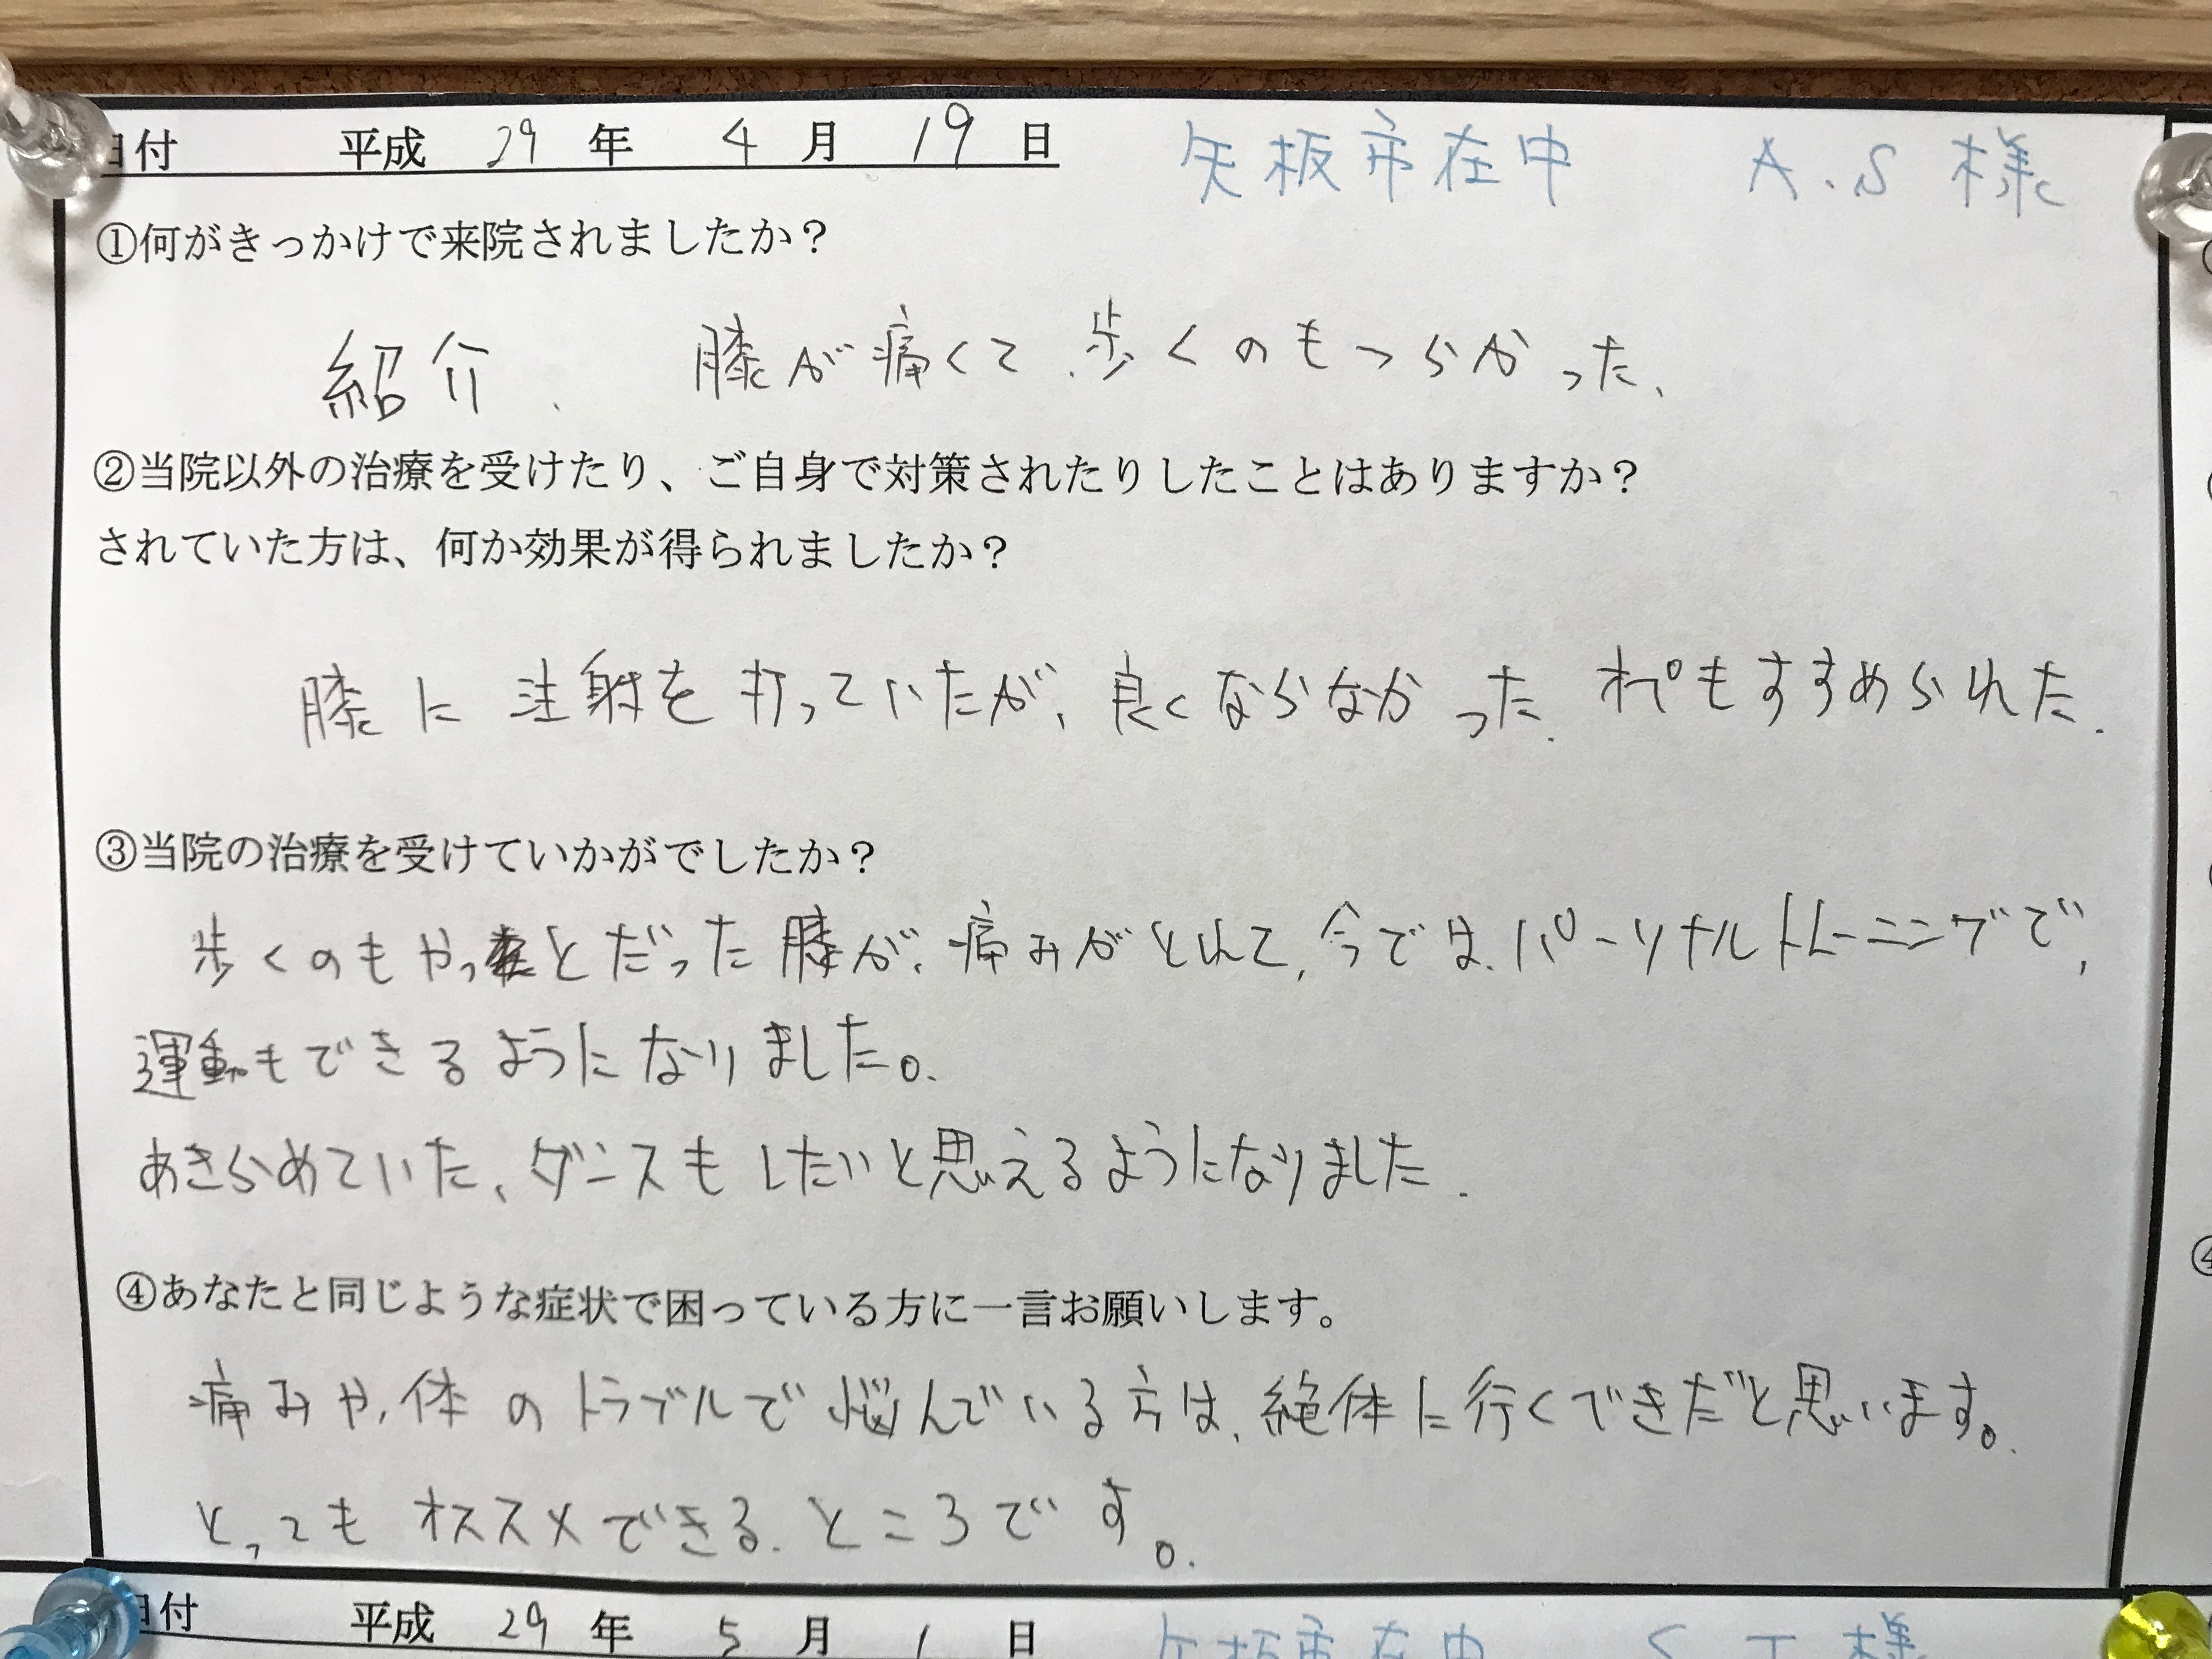 日付　平成 29 年 4 月 19 日　矢板市在中　A.S 様
①何がきっかけで来院されましたか？
紹介．　膝が痛くて．歩くのもつらかった、
②当院以外の治療を受けたり、ご自身で対策されたりしたことはありますか？
されていた方は、何か効果が得られましたか？
膝に注射を打っていたが、良くならなかった．オペもすすめられた．
③当院の治療を受けていかがでしたか？
歩くのもやっとだった膝が、痛みがとれて、今では、パーソナルトレーニングで、
運動もできるようになりました。
あきらめていた、ダンスもしたいと思えるようになりました．
④あなたと同じような症状で困っている方に一言お願いします。
痛みや、体のトラブルで悩んでいる方は、絶体に行くできだと思います。
とってもオススメできる．ところです。
日付　平成 29 年 5 月 1 日　矢板市在中　S.T 様